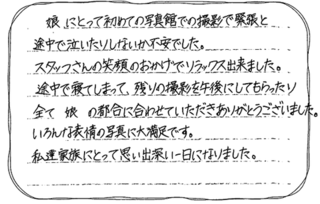 娘にとって初めての写真館での撮影で緊張と
途中で泣いたりしないか不安でした。
スタッフさんの笑顔のおかげでリラックス出来ました。
途中で寝てしまって、残りの撮影を午後にしてもらったり
全て 娘 の都合に合わせていただきありがとうございました。
いろんな表情の写真に大満足です。
私達家族にとって思い出深い一日になりました。